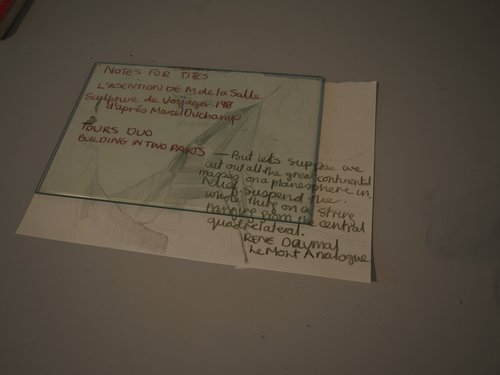 NOTES FOR TITES
L'ASENTION DE M. de la Salle
Sculpture de Voyages 1918
d'après Marcel Duchamp
TOURS DUO
BUILDING IN TWO PARTS
— But lets suppose we
cut out all the great continental
masses on a planesphere in
relief suspend the
whole thing on a string
hanging from the central
quadrelateral.
RENE DAUMAL
Le Mont Analogue